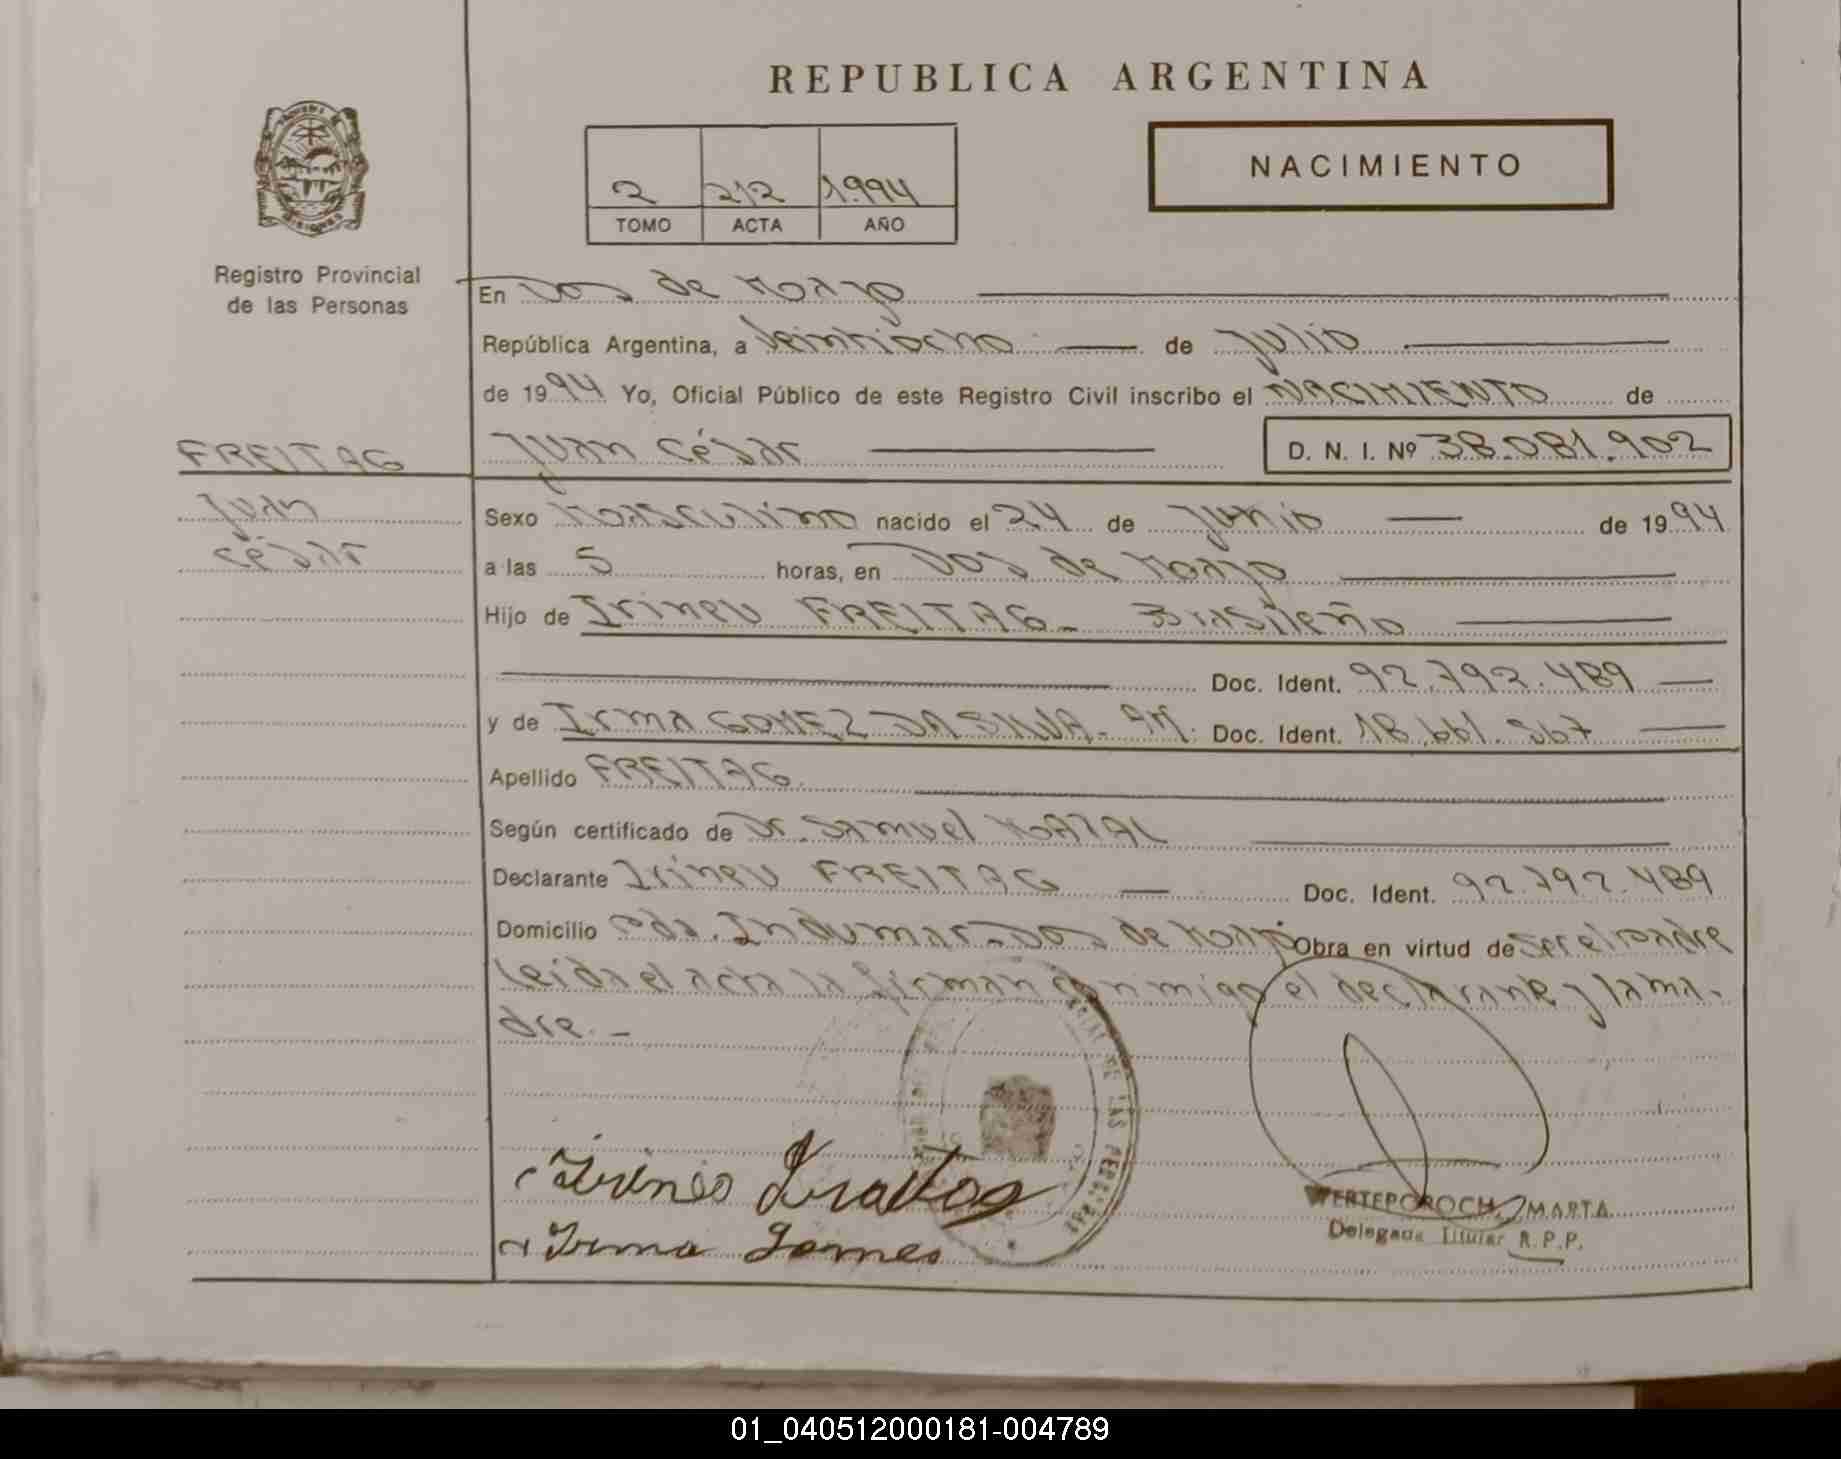 REPUBLICA ARGENTINA
NACIMIENTO
2 212 1.994
TOMO ACTA AÑO
Registro Provincial
de las Personas
En Dos de Mayo
República Argentina, a Veintiocho de Julio
de 1994 Yo, Oficial Público de este Registro Civil inscribo el NACIMIENTO de
FREITAG
Juan César D. N. I. Nº 38.081.902
Juan
César
Sexo Masculino nacido el 24 de Junio de 1994
a las 5 horas, en Dos de Mayo
Hijo de Irineu FREITAG - Brasileño
Doc. Ident. 92.792.489
y de Irma GOMEZ DA SILVA - Doc. Ident. 18.661.567
Apellido FREITAG
Según certificado de Dr. Samuel
Declarante Irineu FREITAG Doc. Ident. 92.792.489
Domicilio Indumar - Dos de Mayo Obra en virtud de ser el padre
leida el acta la firman conmigo el declarante y la ma-
dre. -
Irma Gomes
WERTEPOROCH, MARTA
Delegada Titular R.P.P.
01_040512000181-004789